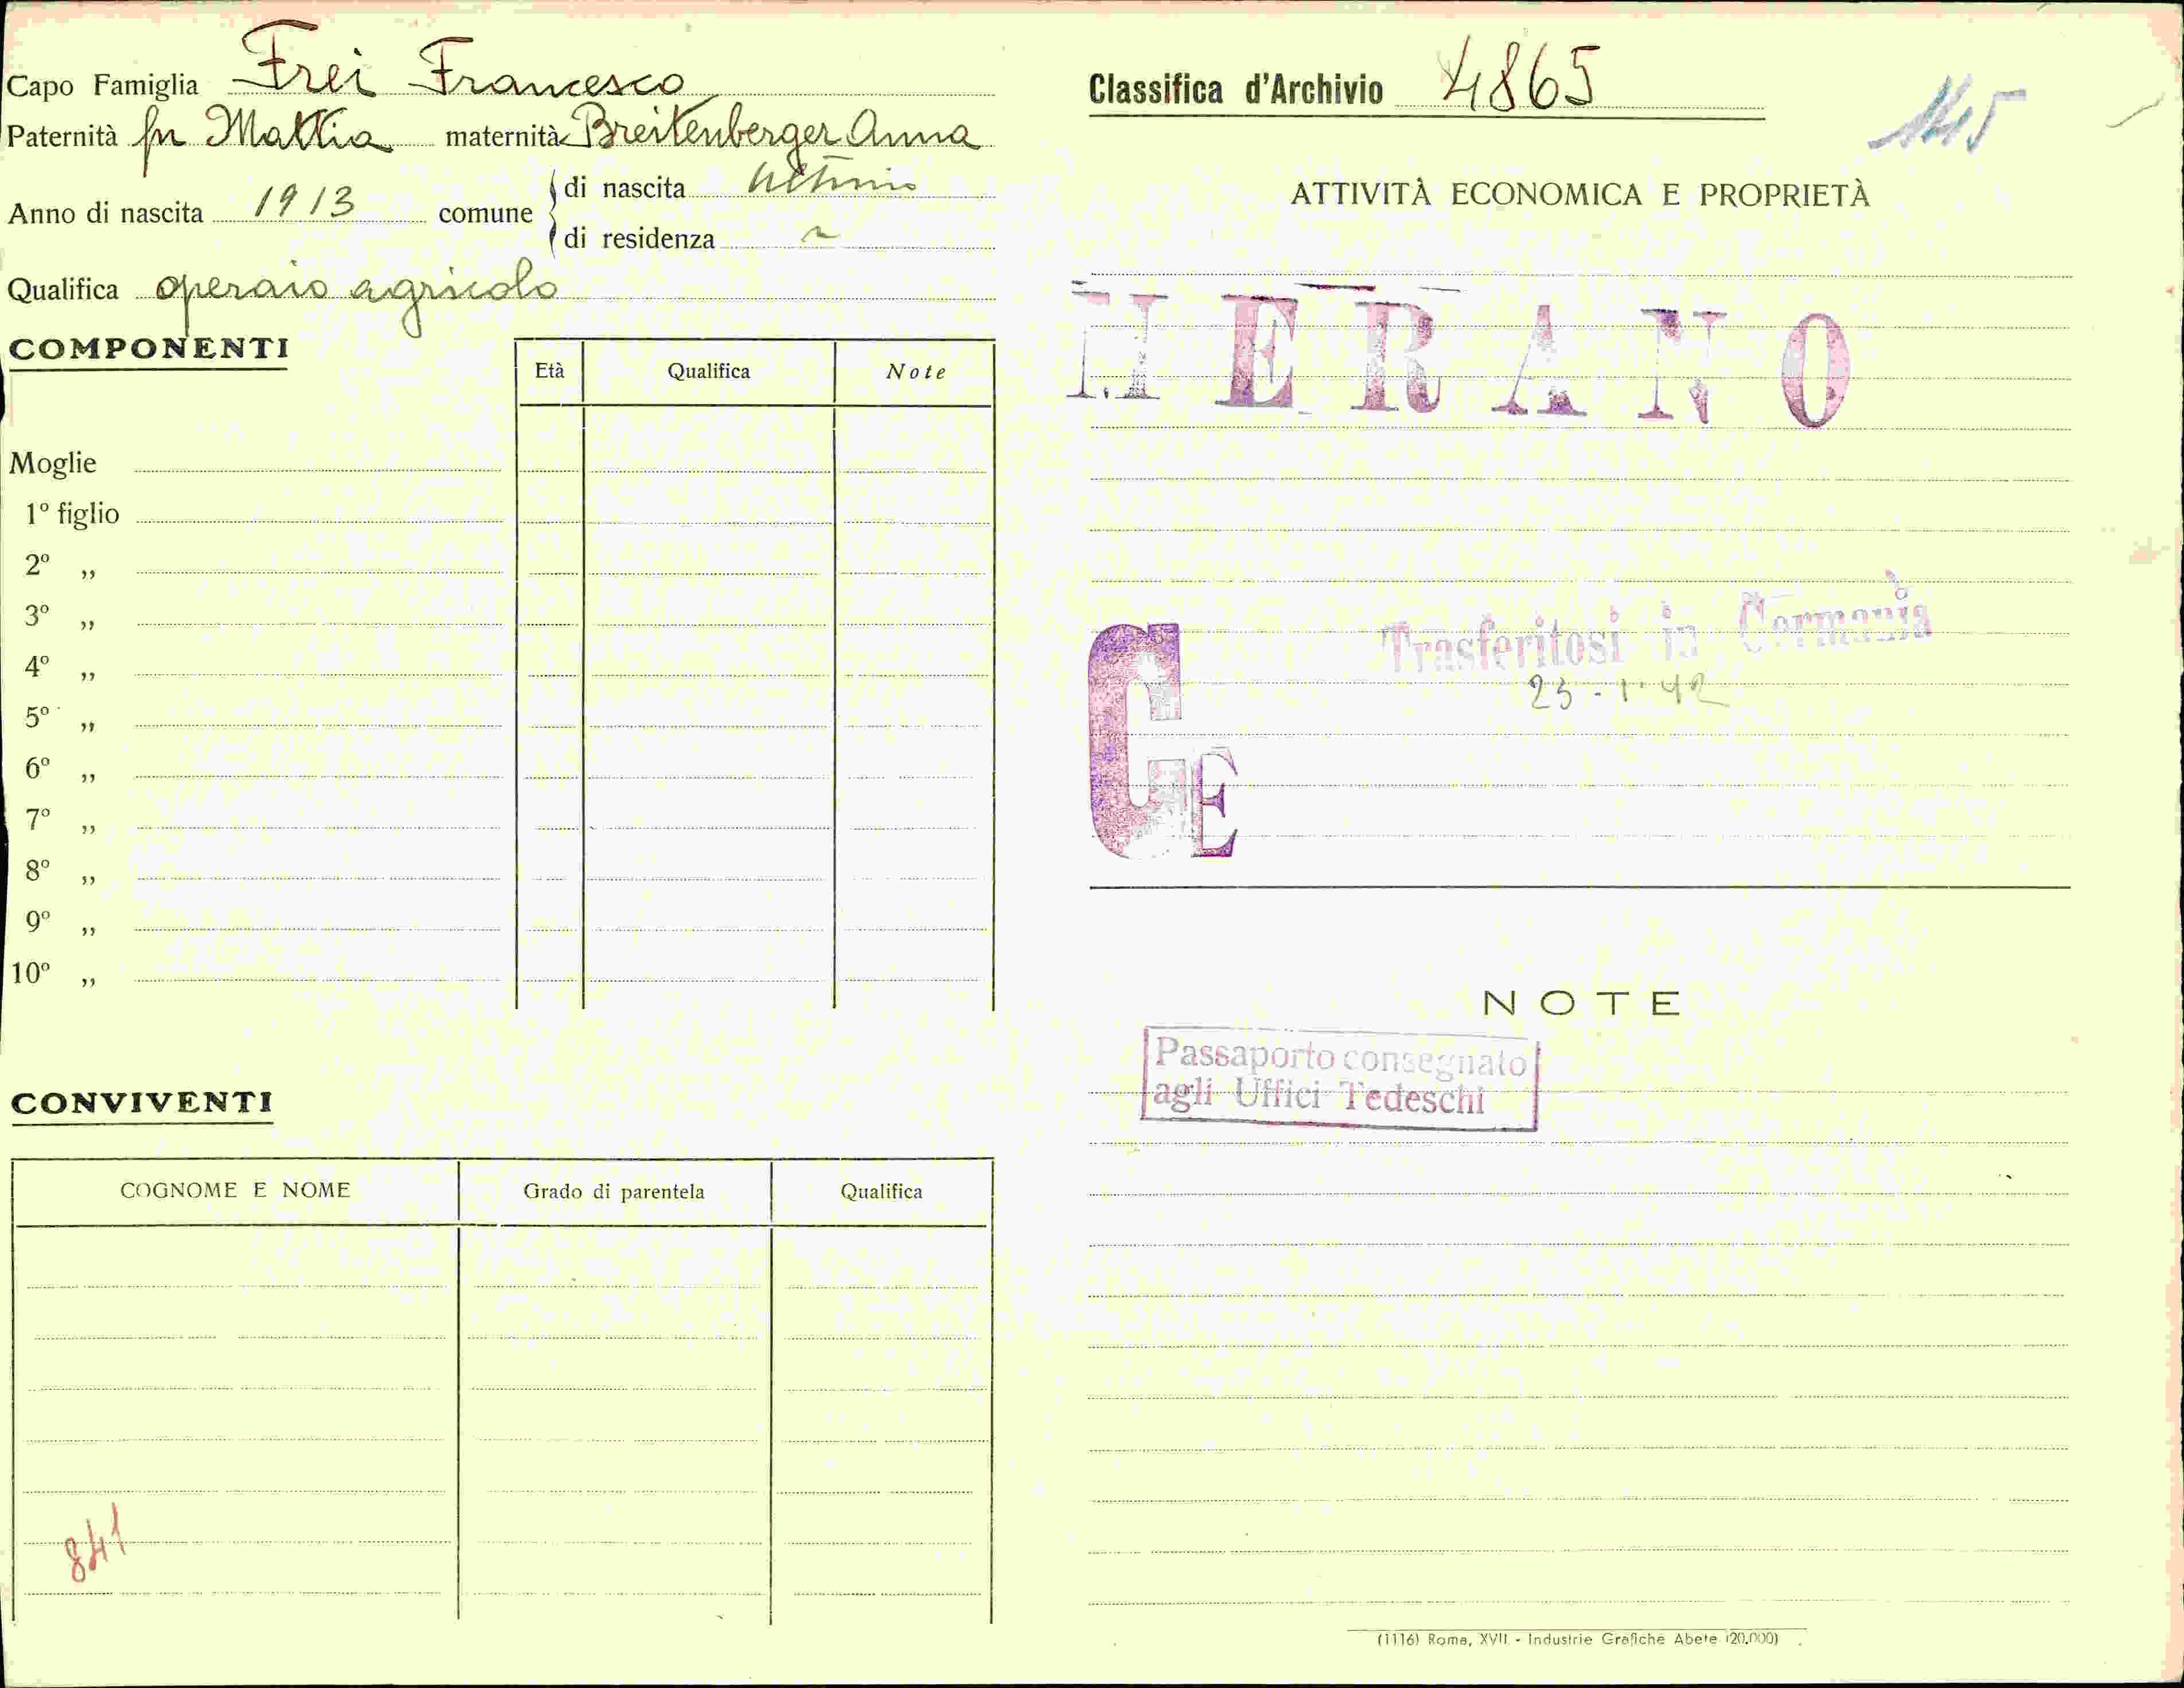 Capo Famiglia Frei Francesco
Paternità fu Mattia maternità Breitenberger Anna
Anno di nascita 1913 comune di nascita Ultimo
di residenza "
Qualifica operaio agricolo
COMPONENTI
Età Qualifica Note
Moglie
1º figlio
2º „
3º „
4º „
5º „
6º „
7º „
8º „
9º „
10º „
CONVIVENTI
COGNOME E NOME Grado di parentela Qualifica
841
Classifica d'Archivio 4865
ATTIVITÀ ECONOMICA E PROPRIETÀ
MERANO
Trasferitosi in Germania
25-1-42
GE
NOTE
Passaporto consegnato
agli Uffici Tedeschi
(1116) Roma, XVII - Industrie Grafiche Abete (20.000)